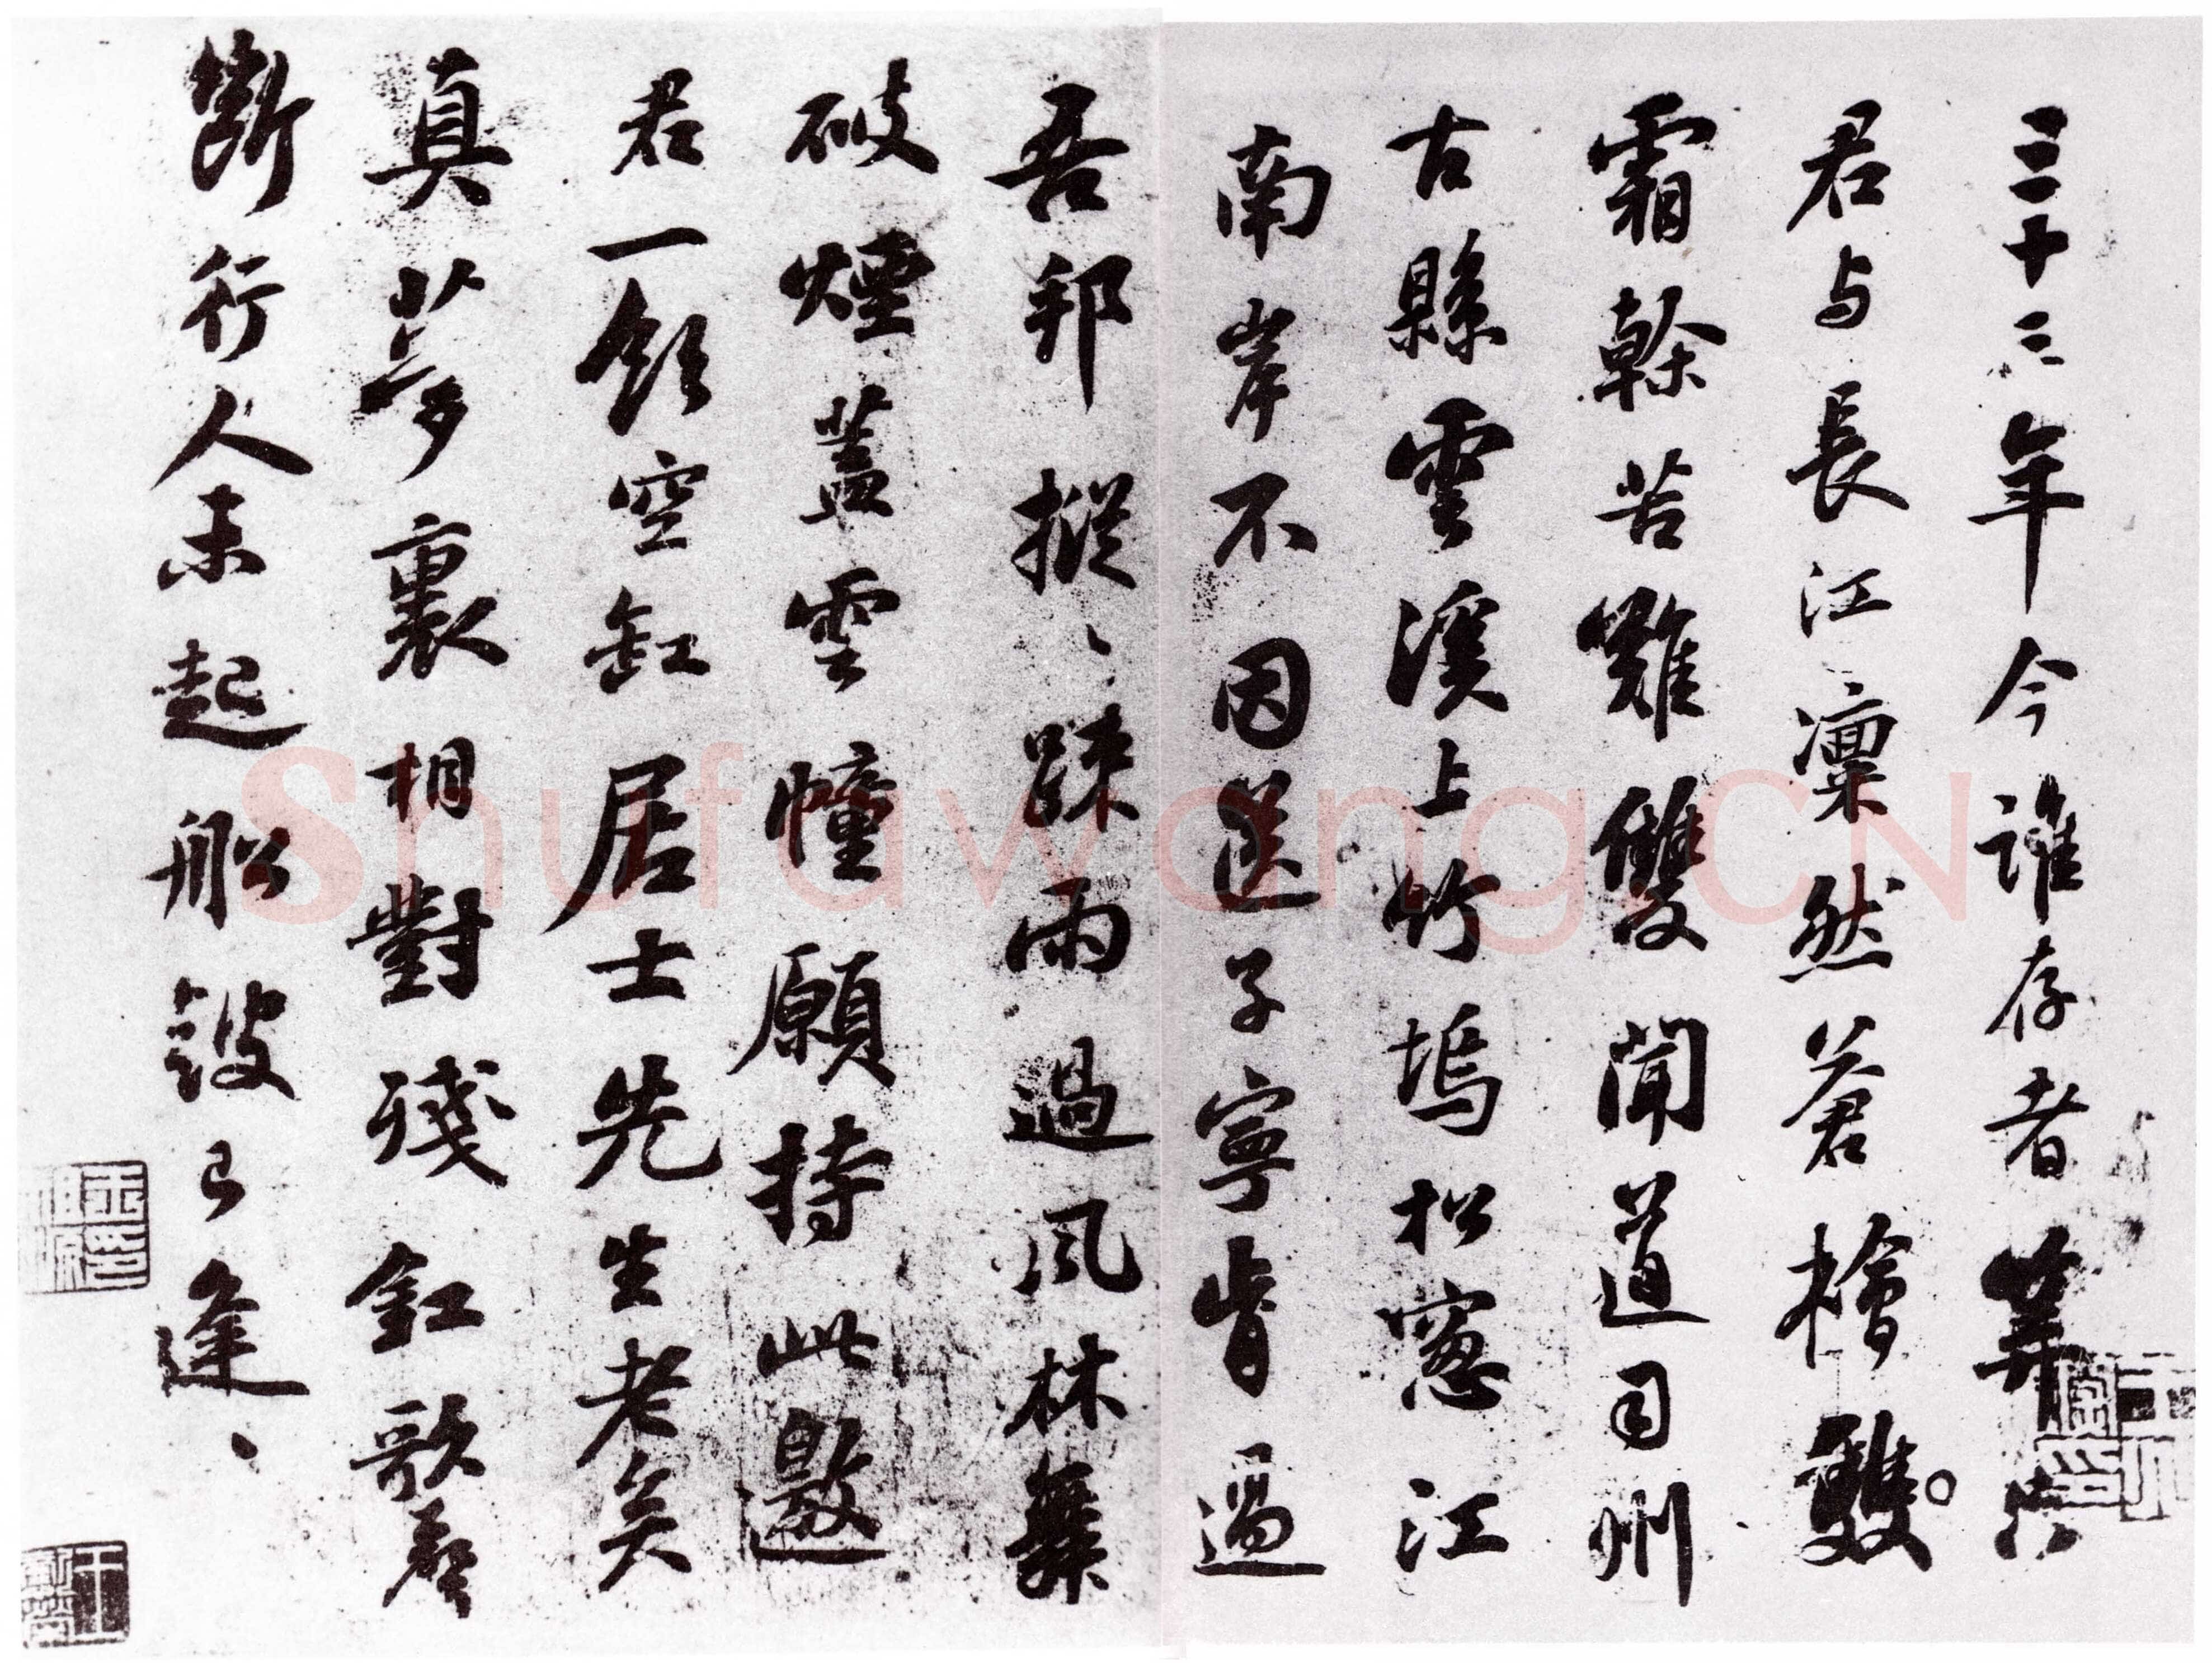 三十三年今誰存者筭只
君与長江凛然蒼檜雙
霜榦苦難雙聞道司州
古縣雲溪上竹塢松窓江
南岸不因送子寧肯過
吾邦摐、踈雨過風林舞
破煙蓋雲幢願持此邀
君一飲空缸居士先生老矣
真夢裏相對殘釭歌聲
斷行人未起船鼓已逢、
Shufawang.CN